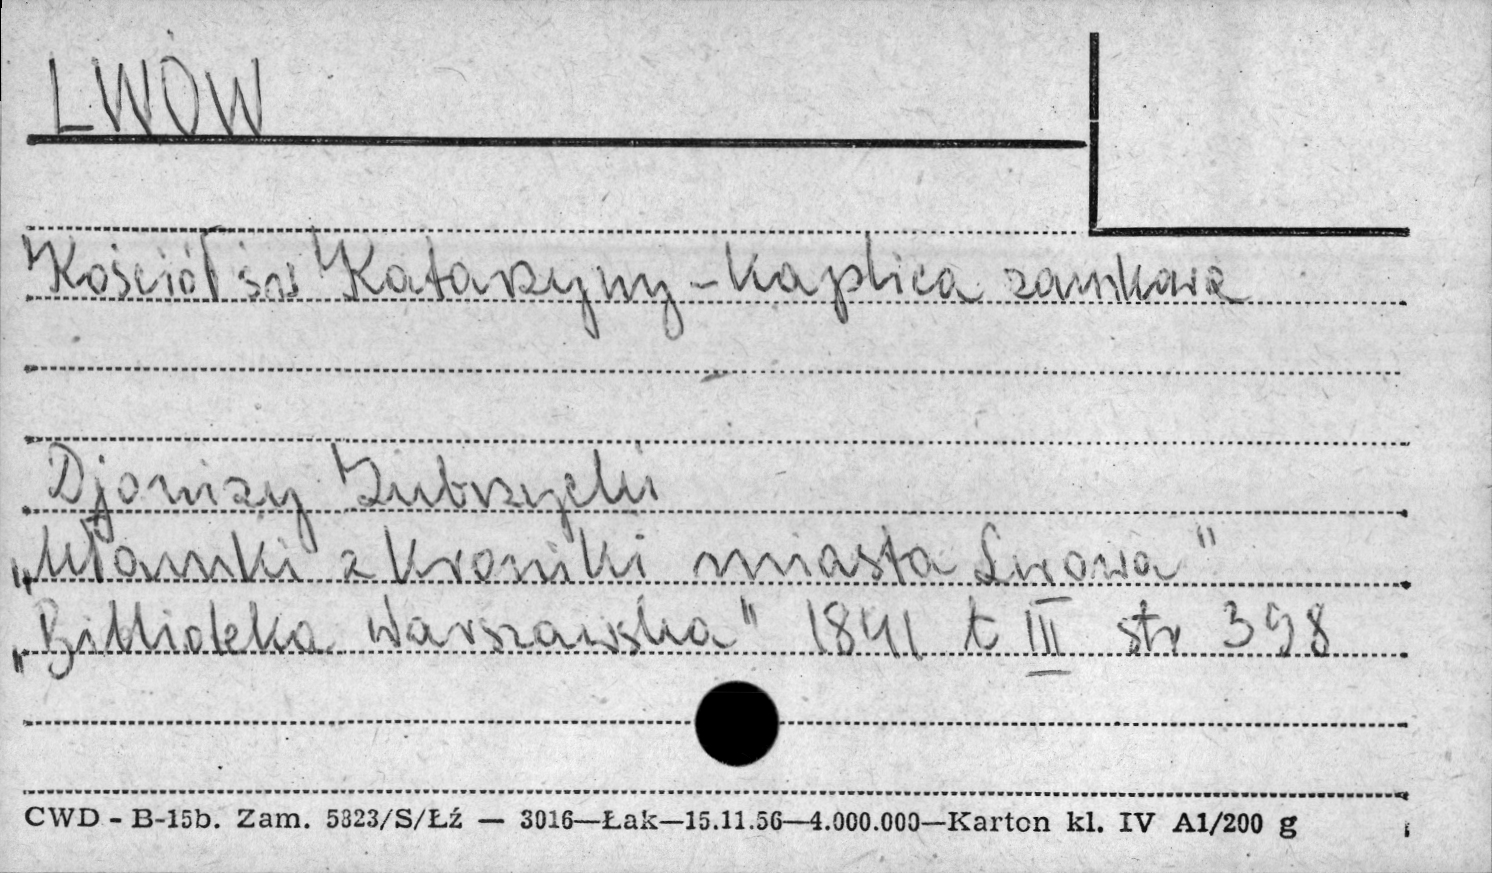 LWÓW
Kościół św Katarzyny - Kaplica zamkowa
Djonizy Zubrzycki
„Ułamki z Kroniki miasta Lwowa"
„Biblioteka Warszawska" 1841 t III str 398
CWD - B-15b. Zam. 5823/S/Łź — 3016—Łak—15.11.56—4.000.000—Karton kl. IV A1/200 g